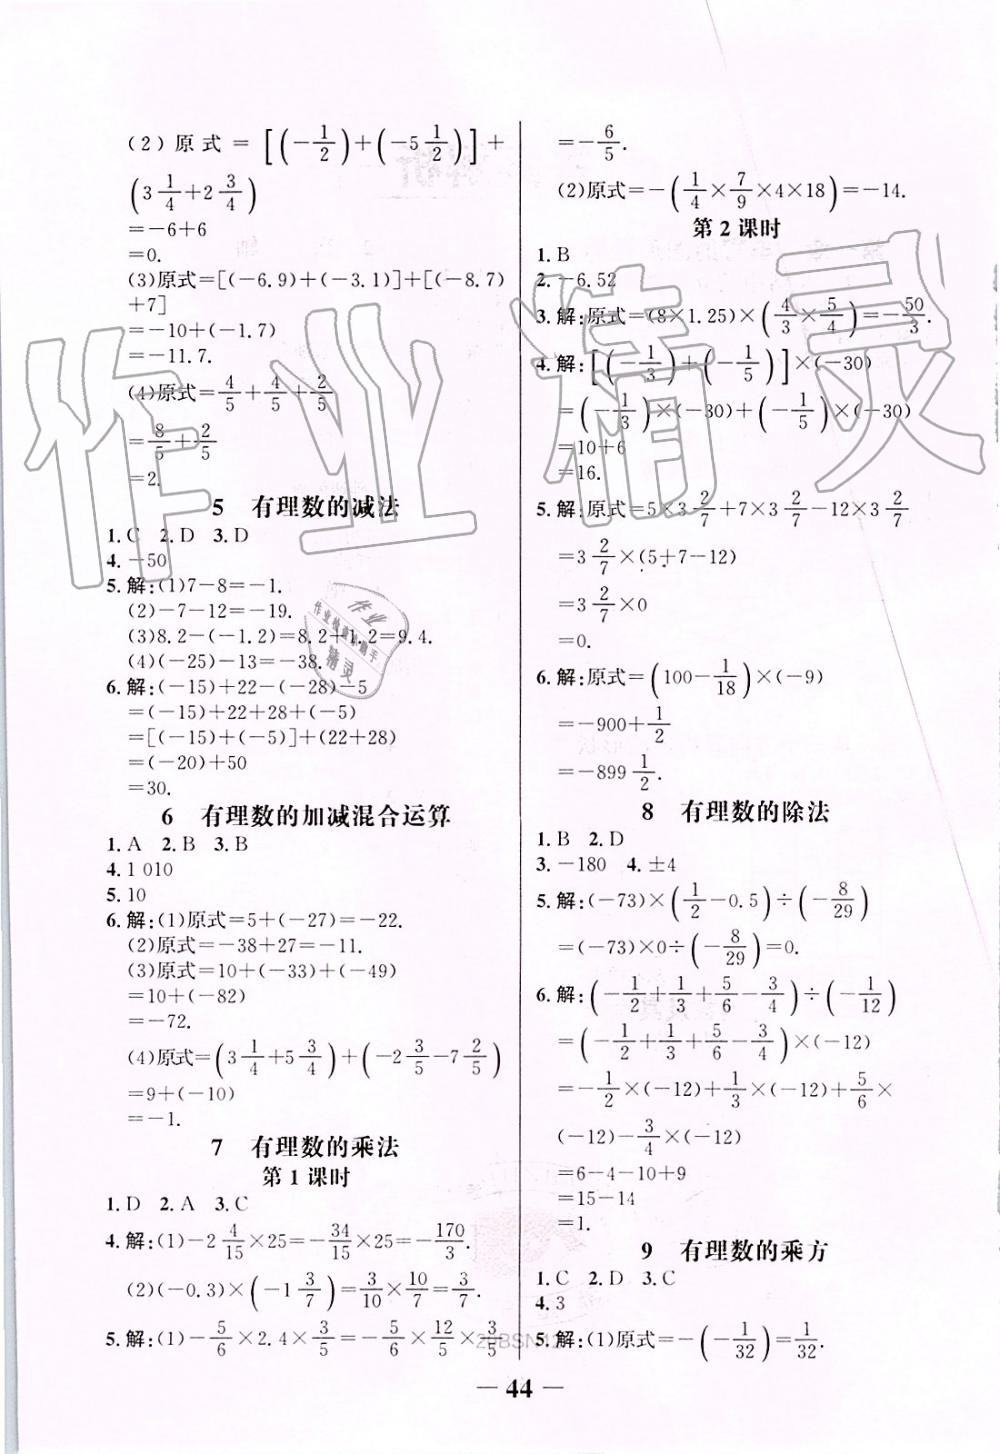 (2)原式=[(-1/2)+(-5 1/2)]+
(3 1/4+2 3/4)
=-6+6
=0.
(3)原式=[(-6.9)+(-3.1)]+[(-8.7)
+7]
=-10+(-1.7)
=-11.7.
(4)原式=4/5+4/5+2/5
=8/5+2/5
=2.
5 有理数的减法
1.C 2.D 3.D
4.-50
5.解:(1)7-8=-1.
(2)-7-12=-19.
(3)8.2-(-1.2)=8.2+1.2=9.4.
(4)(-25)-13=-38.
6.解:(-15)+22-(-28)-5
=(-15)+22+28+(-5)
=[(-15)+(-5)]+(22+28)
=(-20)+50
=30.
6 有理数的加减混合运算
1.A 2.B 3.B
4.1 010
5.10
6.解:(1)原式=5+(-27)=-22.
(2)原式=-38+27=-11.
(3)原式=10+(-33)+(-49)
=10+(-82)
=-72.
(4)原式=(3 1/4+5 3/4)+(-2 3/5-7 2/5)
=9+(-10)
=-1.
7 有理数的乘法
第1课时
1.D 2.A 3.C
4.解:(1)-2 4/15×25=-34/15×25=-170/3.
(2)(-0.3)×(-1 3/7)=3/10×10/7=3/7.
5.解:(1)-5/6×2.4×3/5=-5/6×12/5×3/5
=-6/5.
(2)原式=-(1/4×7/9×4×18)=-14.
第2课时
1.B
2.-6.52
3.解:原式=-(8×1.25)×(4/3×5/4)=-50/3.
4.解:[(-1/3)+(-1/5)]×(-30)
=(-1/3)×(-30)+(-1/5)×(-30)
=10+6
=16.
5.解:原式=5×3 2/7+7×3 2/7-12×3 2/7
=3 2/7×(5+7-12)
=3 2/7×0
=0.
6.解:原式=(100-1/18)×(-9)
=-900+1/2
=-899 1/2.
8 有理数的除法
1.B 2.D
3.-180 4.±4
5.解:(-73)×(1/2-0.5)÷(-8/29)
=(-73)×0÷(-8/29)=0.
6.解:(-1/2+1/3+5/6-3/4)÷(-1/12)
=(-1/2+1/3+5/6-3/4)×(-12)
=-1/2×(-12)+1/3×(-12)+5/6×
(-12)-3/4×(-12)
=6-4-10+9
=15-14
=1.
9 有理数的乘方
1.C 2.D 3.C
4.3
5.解:(1)原式=-(-1/32)=1/32.
— 44 —
作业精灵
作业
作业检查小助手
精灵